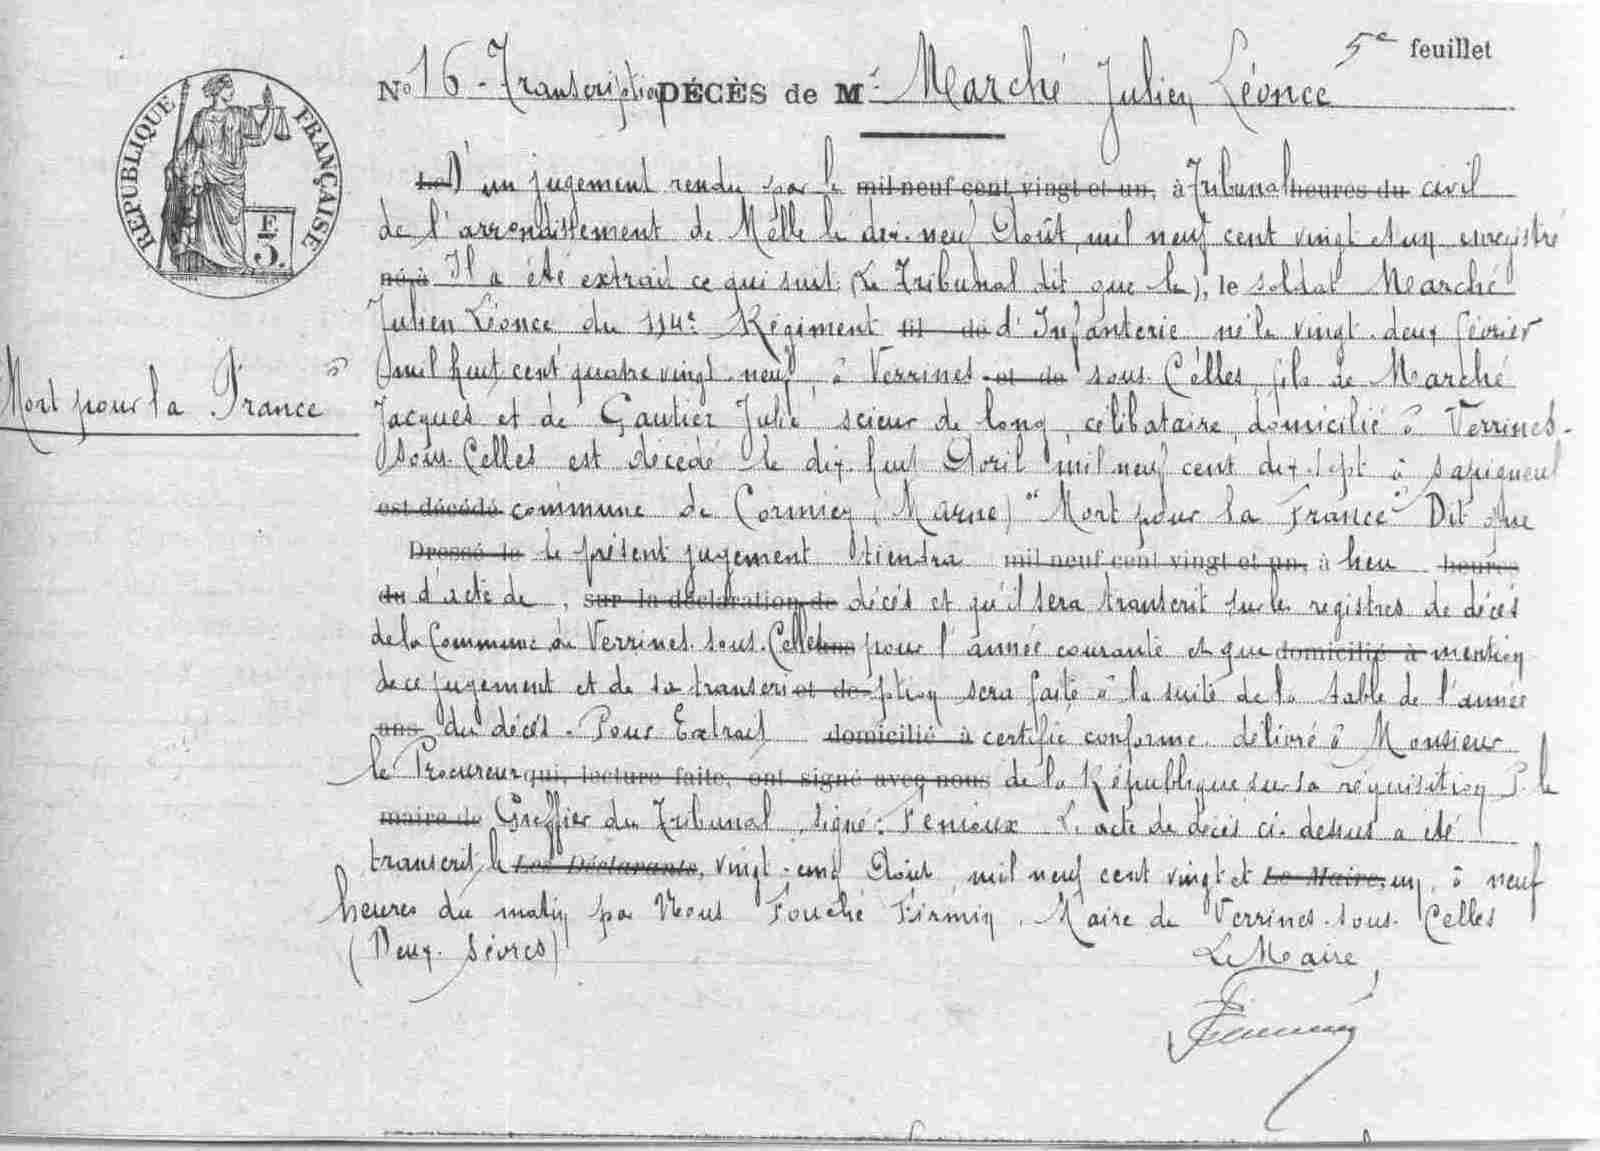 5e feuillet
No 16 - Transcription DÉCÈS de M. Marché Julien Léonce
RÉPUBLIQUE FRANÇAISE
F.
5.
Le D'un jugement rendu par le mil neuf cent vingt et un, à Tribunal heures du civil
de l'arrondissement de Melle le dix-neuf Août mil neuf cent vingt et un enregistré
né à Il a été extrait ce qui suit. (Le Tribunal dit que le), le soldat Marché
Julien Léonce du 114e Régiment fil de d'Infanterie né le vingt-deux février
mil huit cent quatre vingt-neuf, à Verrines et de sous-Celles, fils de Marché
Mort pour la France
Jacques et de Gautier Julie scieur de long célibataire, domicilié à Verrines-
sous-Celles est décédé le dix-huit Avril mil neuf cent dix-sept à Sapigneul
est décédé commune de Cormicy (Marne) "Mort pour la France" Dit que
Dressé le le présent jugement tiendra mil neuf cent vingt et un, à lieu heures
du d'acte de, sur la déclaration de décès et qu'il sera transcrit sur les registres de décès
de la Commune de Verrines-sous-Celles ans pour l'année courante et que domicilié à mention
de ce jugement et de sa transcri et de ption sera faite à la suite de la table de l'année
ans du décès. Pour Extrait domicilié à certifié conforme délivré à Monsieur
le Procureur qui, lecture faite, ont signé avec nous de la République sur sa réquisition P. le
maire de Greffier du Tribunal, signé: Fenioux L'acte de décès ci-dessus a été
transcrit le Les Déclarants, vingt-cinq Août, mil neuf cent vingt et Le Maire, un, à neuf
heures du matin par Nous Fouché Firmin, Maire de Verrines-sous-Celles
(Deux-Sèvres) Le Maire,